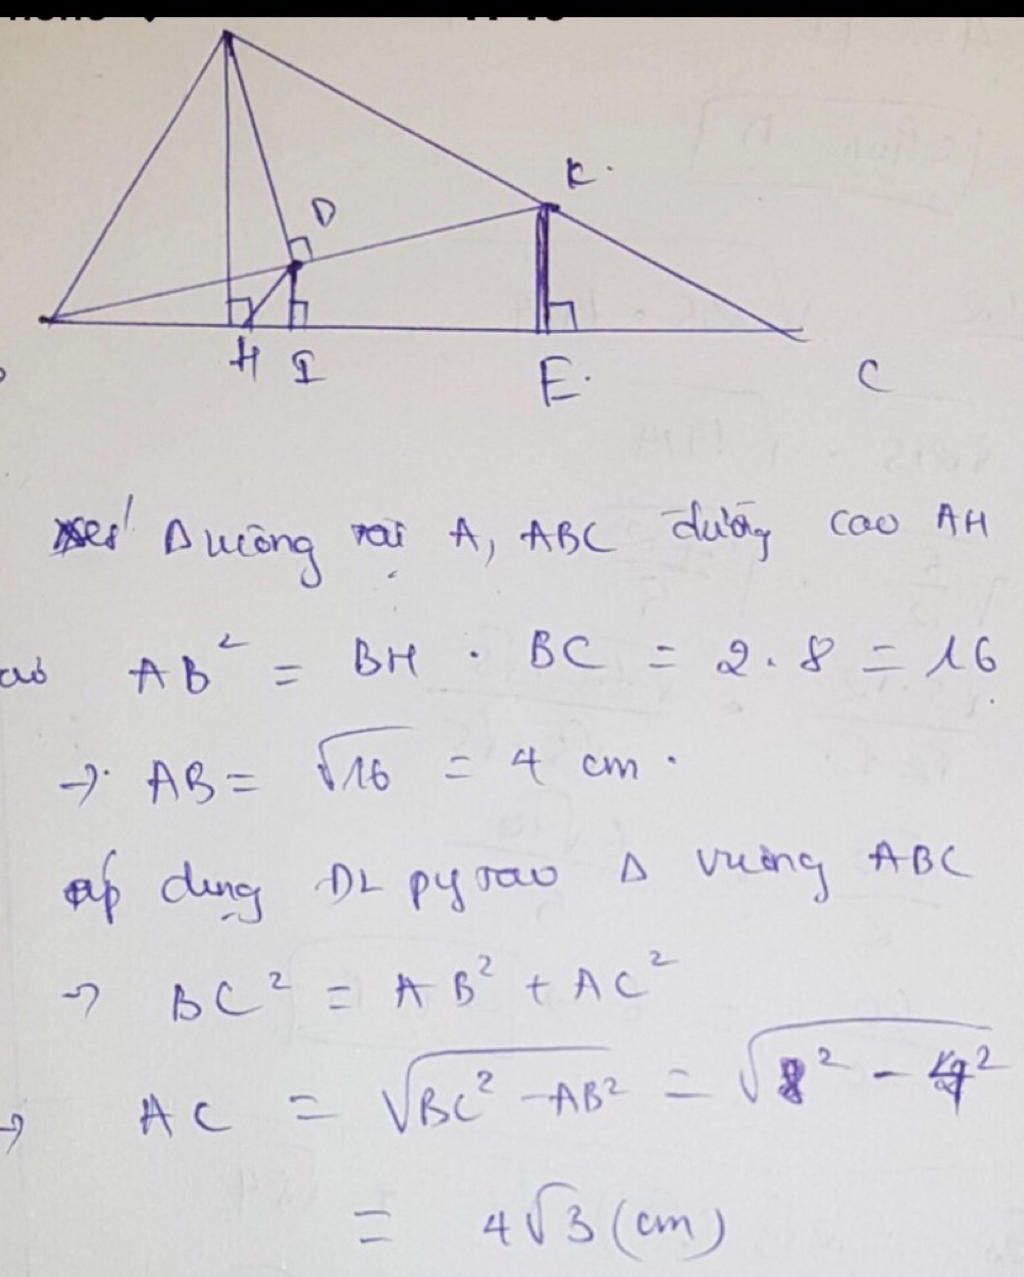 K.
D
H I E. C
xét Δ vuông tại A, ABC đường cao AH
AB² = BH . BC = 2.8 = 16
→ AB = √16 = 4 cm.
áp dụng ĐL pytago Δ vuông ABC
→ BC² = AB² + AC²
→ AC = √BC² - AB² = √8² - 4²
= 4√3 (cm)